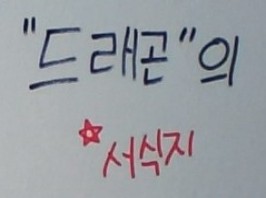 "드래곤"의
☆서식지